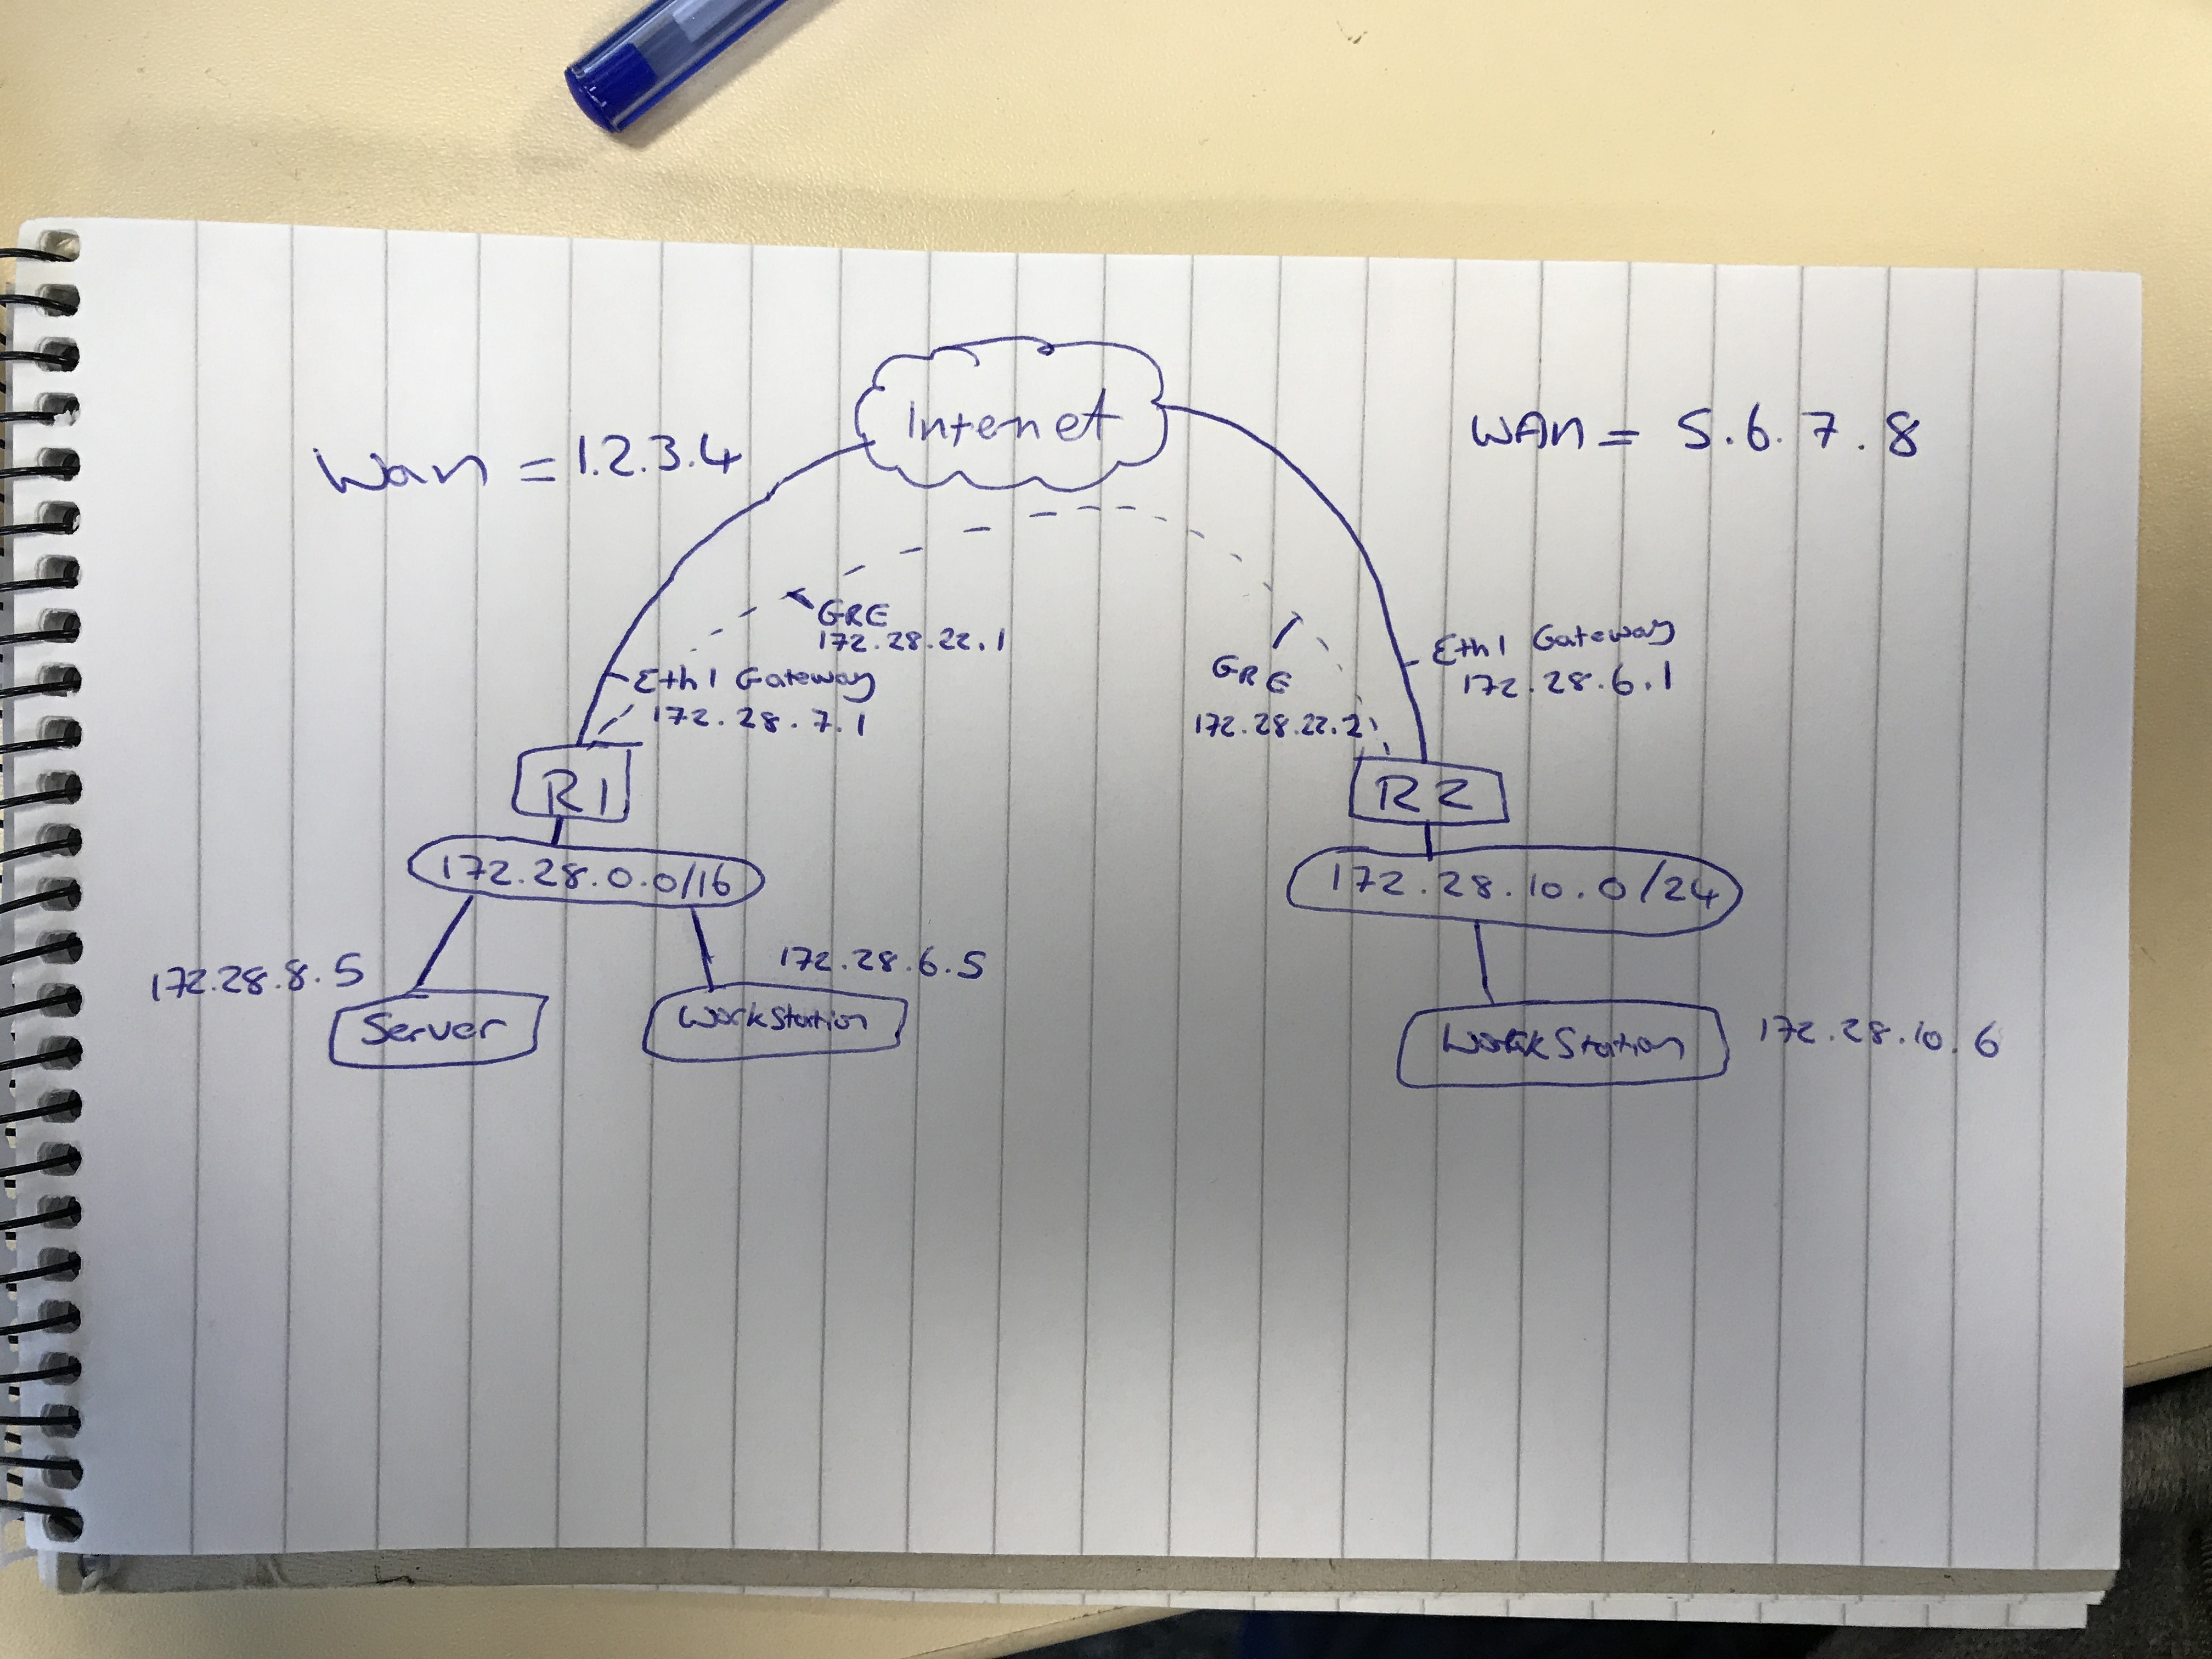 Internet
Wan = 1.2.3.4
WAn = 5.6.7.8
GRE
172.28.22.1
Eth1 Gateway
172.28.7.1
GRE
172.28.22.2
Eth1 Gateway
172.28.6.1
R1
R2
172.28.0.0/16
172.28.10.0/24
172.28.8.5
Server
172.28.6.5
Workstation
Workstation
172.28.10.6